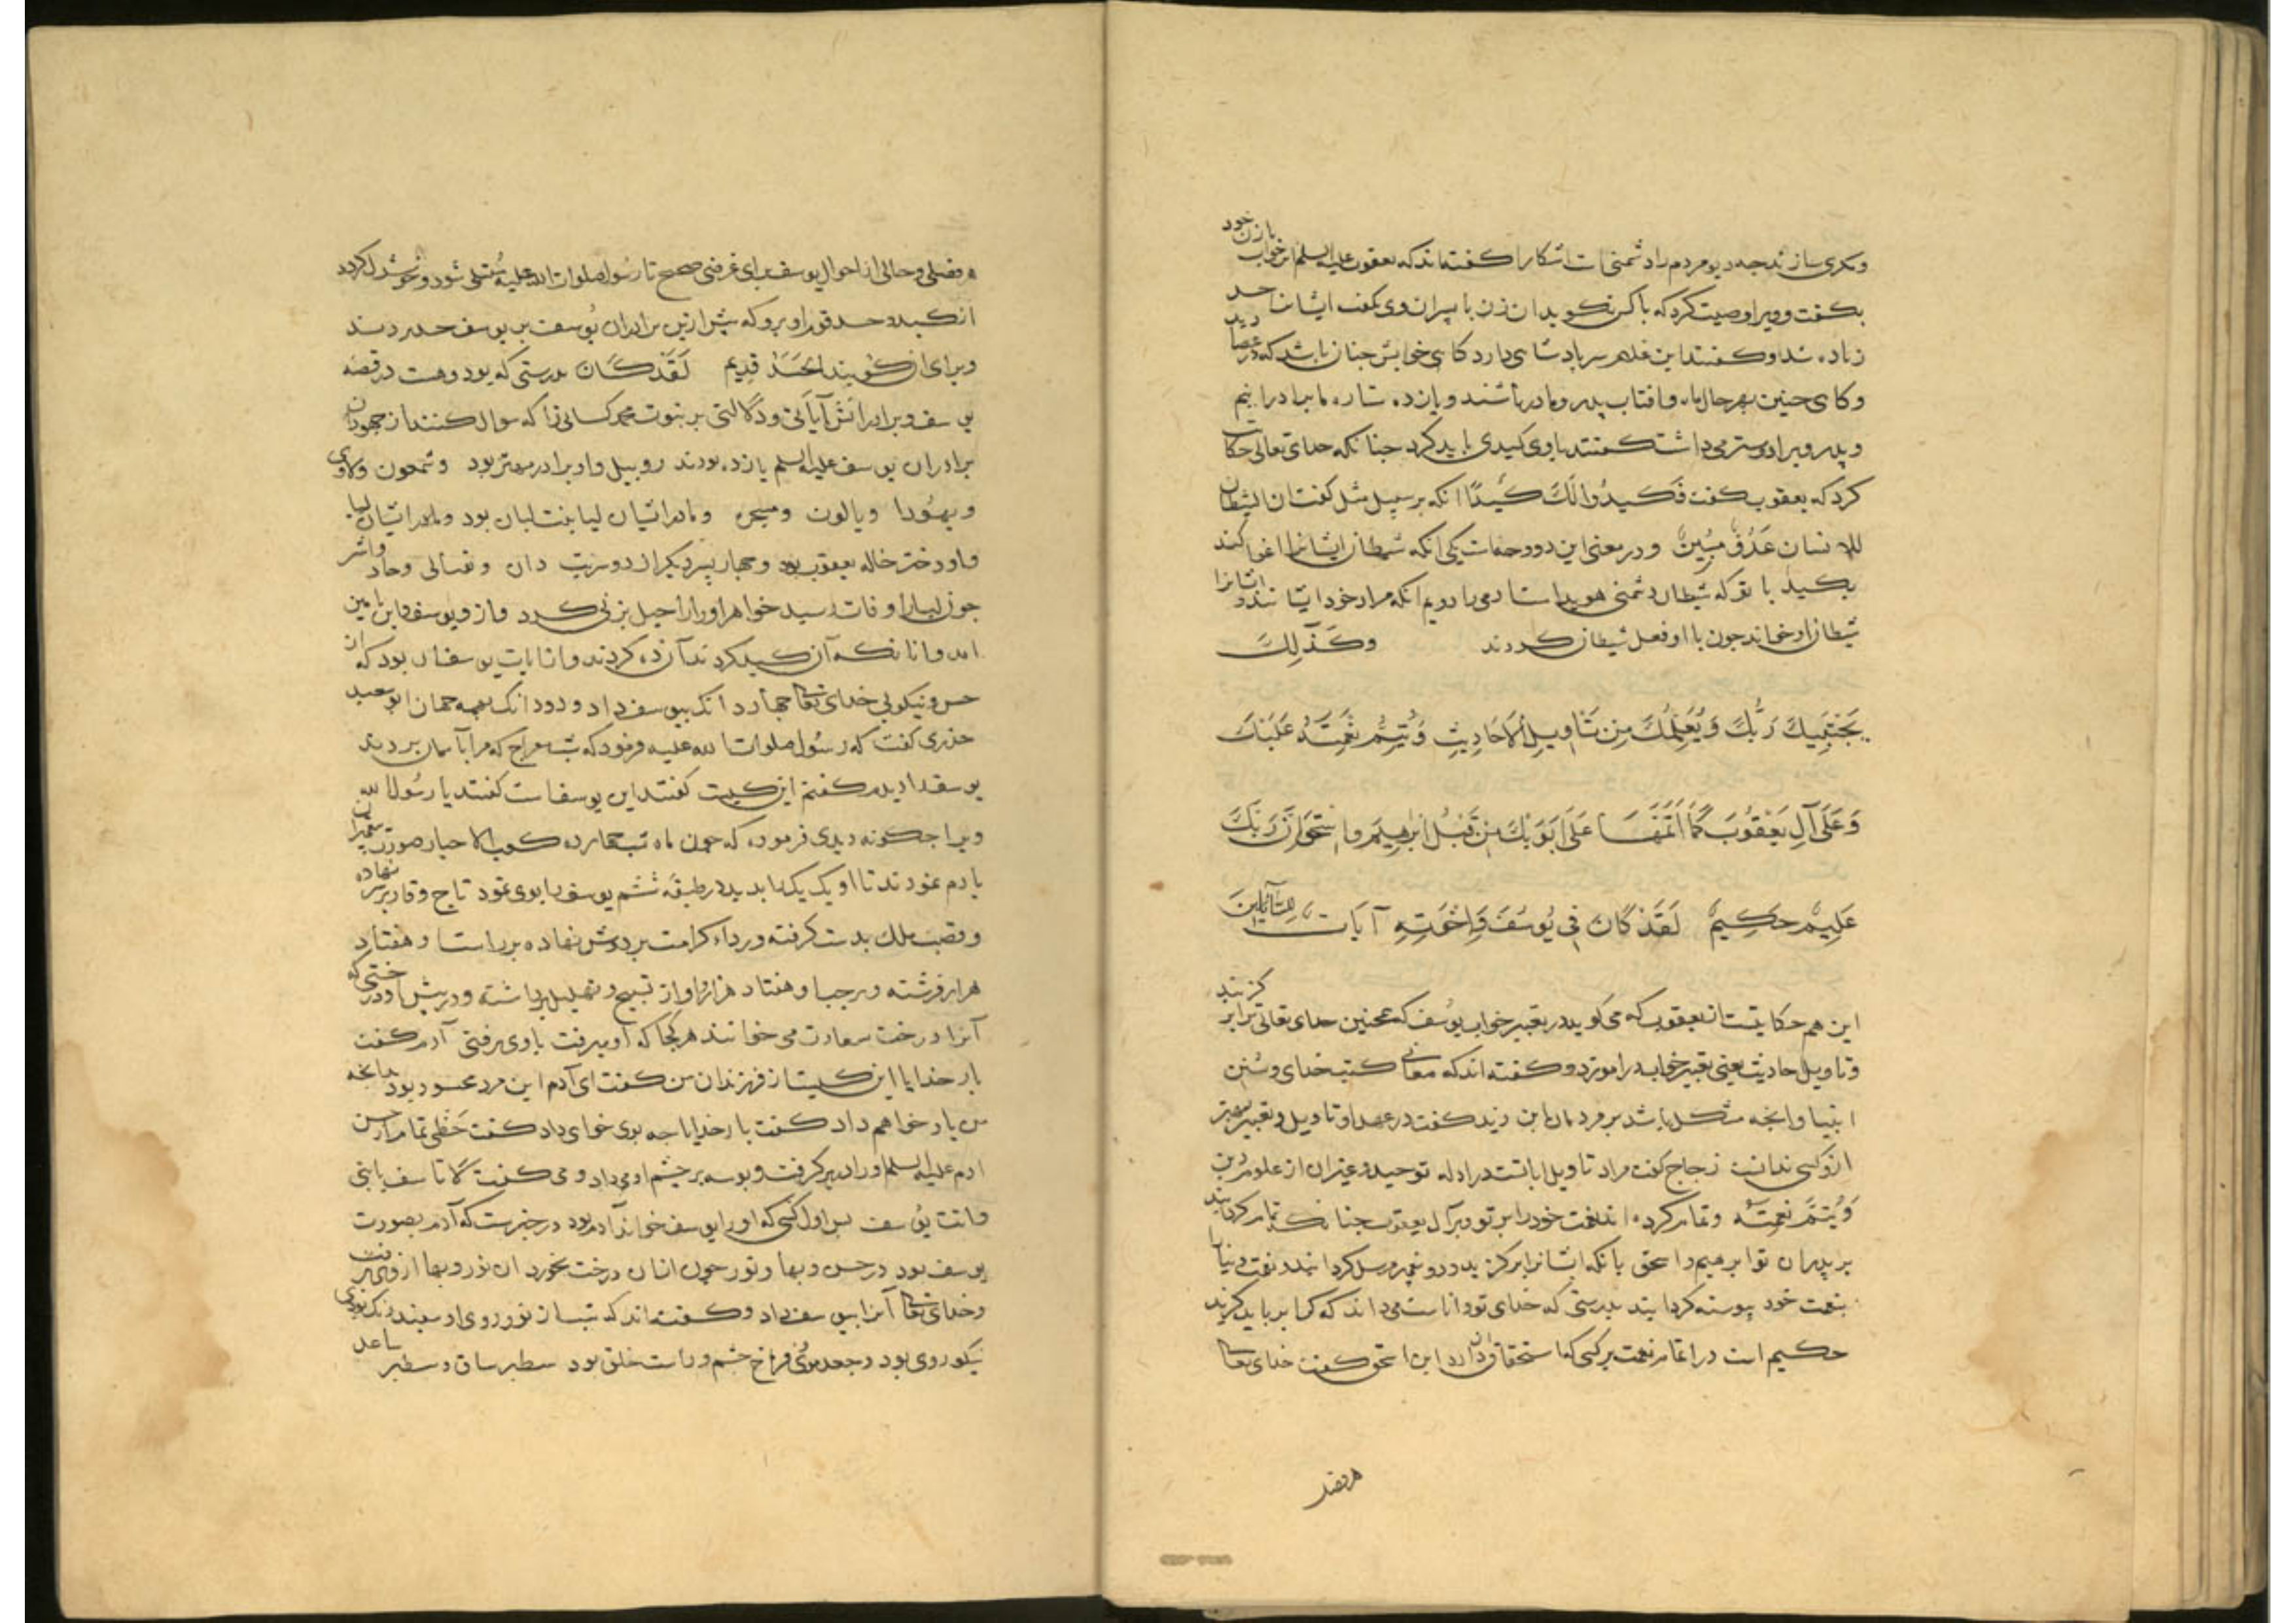 ومکری سازند چه دیو مردم را دشمنی است اشکارا کفته‌اند که یعقوب علیه السلم این خواب با زن خود
بکفت و ویرا وصیت کرد که با کس نکوید ان زن با پسران وی بکفت ایشانرا حسد
زیاده شد و کفتند این غلام سر پادشاهی دارد کاهی خوابش چنان باشد که
وکاهی چنین بهر حال ماه وافتاب پدر ومادر باشند ویازده ستاره ما برادرانیم
وپدر ویرا دوستر می داشت کفتند باوی کیدی باید کرد چنانکه خدای تعالی حکایت
کرد که یعقوب کفت فَكيدُوا لَكَ كَيْدًا انکه بر سبیل مثل کفت ان الشیطان
للانسان عَدُوٌّ مُبِينٌ ودر معنی این دو وجه است یکی انکه شیطان ایشانرا اغوا کند
بکید با تو که شیطان دشمنی هویداست ادمی را دویم انکه مراد خود ایشانند وایشانرا
شیطان از خواند چون با او فعل شیطان کردند وَكَذَلِكَ
يَجْتَبِيكَ رَبُّكَ وَيُعَلِّمُكَ مِن تَأوِيلِ الأَحَادِيثِ وَيُتِمُّ نِعْمَتَهُ عَلَيْكَ
وَعَلَى آلِ يَعْقُوبَ كَمَا أَتَمَّهَا عَلَى أَبَوَيْكَ مِن قَبْلُ إِبْرَاهِيمَ وَإِسْحَقَ إِنَّ رَبَّكَ
عَلِيمٌ حَكِيمٌ لَقَدْ كَانَ فِي يُوسُفَ وَإِخْوَتِهِ آيَات لِلسَّائِلِينَ
این هم حکایتست از یعقوب که می کوید در تعبیر خواب یوسف که همچنین خدای تعالی ترا بر کزیند
وتاویل احادیث یعنی تعبیر خواب در اموزد وکفته اند که معانی کتب خدای وسنن
انبیا وانچه مشکل باشد بر مردمان ابن زید کفت در عهد او تاویل وتعبیر بهتر
ازو کسی ندانست زجاج کفت مراد تاویل ایاتست در ادله توحید وغیر ان از علوم دین
وَيُتِمُّ نِعْمَتَهُ وتمام کرده اند نعمت خود را بر تو وبر آل یعقوب چنانکه تمام کردانید
بر پدران تو ابرهیم واسحق بانکه ایشانرا بر کزید ودو پیغمبر مرسل کردانید ونعمت دنیا را
بنعمت خود پیوسته کردانید بدرستی که خدای تو داناست می داند که کرا بر باید کزید
حکیم است در اتمام نعمت بر کسی که استحقاق ان دارد ابن اسحق کفت خدای تعالی
هر فضلی
هر فضلی وحالی از احوال یوسف برای غرضی صحیح تا رسول صلوات الله علیه متسلی شود وخوشدل کردد
از کید وحسد قوم او برو که پیش ازین برادران یوسف بر یوسف حسد بردند
وبرای ان کویند الحَسَدُ قدیم لَقَدْ كَانَ بدرستی که بود وهست در قصه
یوسف وبرادرانش آیاتی ودلالتی بر نبوت محمد کسانی را که سوال کنند از جهودان
برادران یوسف علیه السلم یازده بودند روبیل واو برادر مهتر بود وشمعون ولاوی
ویهودا وبالون ومادر ایشان لیا بنت لیان بود ومادر ایشان لیا
واو دختر خاله یعقوب بود وچهار پسر دیکر از دو سریت دان ونفتالی وجاد واشر
چون لیا را وفات رسید خواهر او را راحیل بزنی کرد وازو یوسف وابن یامین
امد وانانکه آن کید کردند آن ده کردند واز ایات یوسف ان بود که از
حسن ونیکویی خدای تعالی چهار دانک بیوسف داد ودو دانک بهمه جهان ابو سعید
خذری کفت که رسول صلوات الله علیه فرمود که شب معراج که مرا بآسمان بردند
یوسف را دیدم کفتم این کیست کفتند این یوسف است کفتند یا رسول الله
ویرا چکونه دیدی فرمود که چون ماه شب چهارده کعب الاحبار صورت پیغمبران
بادم نمودند تا او یک یک را بدید در طبقه ششم یوسف را بوی نمود تاج وقار بر سر نهاده
وقضیب ملک بدست کرفته ورداء کرامت بر دوش نهاده بر راست او هفتاد
هزار فرشته وبر چپ او هفتاد هزار اواز تسبیح وتهلیل برداشته ودر پیش او درختی که
آنرا درخت سعادت می خوانند هر کجا که او میرفت باوی برفتی آدم کفت
بار خدایا این کیست از فرزندان من کفت ای آدم این مرد محسود بود بدانچه
من بار خواهم داد کفت بار خدایا چه بوی خواهی داد کفت حَظّی تمام از حسن
ادم علیه السلم او را در بر کرفت وبوسه بر چشم او می داد ومی کفت لا تأسف یا بنی
وانت یوسف پس اول کسی که او را یوسف خواند آدم بود در خبرست که آدم بصورت
یوسف بود در حسن وبها ونور چون از ان درخت بخورد ان نور وبها ازوی برفت
وخدای تعالی آنرا بیوسف داد وکفته‌اند که بشب از نور روی او سپید رنک بودی
نیکو روی بود وجعد موی فراخ چشم وراست خلق بود سطبر ساق وسطبر ساعد